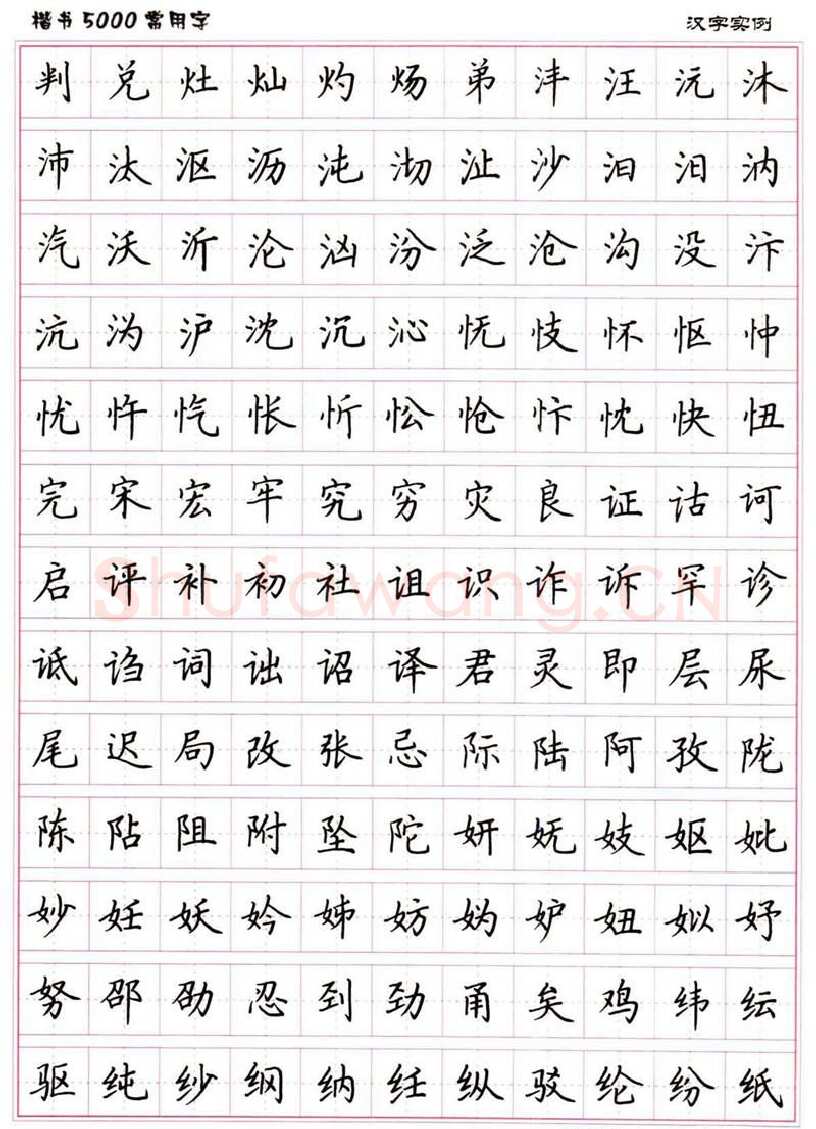 楷书5000常用字 汉字实例
判兑灶灿灼炀弟沣汪沅沐
沛汰沤沥沌沏沚沙汩汨汭
汽沃沂沦汹汾泛沧沟没汴
沆沩沪沈沉沁怃忮怀怄忡
忧忤忾怅忻忪怆忭忱快忸
完宋宏牢究穷灾良证诂诃
启评补初社诅识诈诉罕诊
Shufawang.CN
诋诌词诎诏译君灵即层尿
尾迟局改张忌际陆阿孜陇
陈阽阻附坠陀妍妩妓妪妣
妙妊妖妗姊妨妫妒妞姒妤
努邵劭忍刭劲甬矣鸡纬纭
驱纯纱纲纳纴纵驳纶纷纸